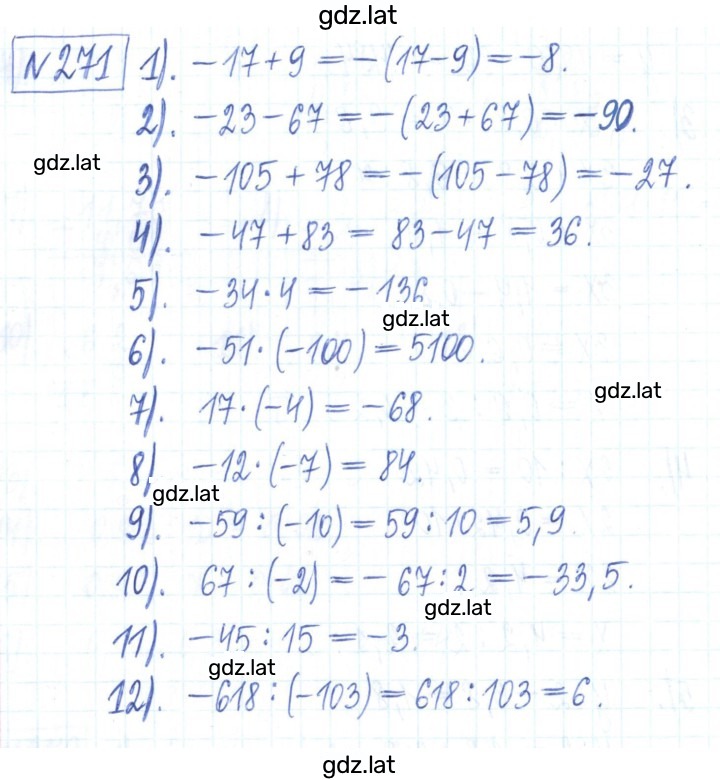 gdz.lat
№271 1). -17+9=-(17-9)=-8.
2). -23-67=-(23+67)=-90.
gdz.lat
3). -105+78=-(105-78)=-27.
4). -47+83=83-47=36.
5). -34·4=-136
gdz.lat
6). -51·(-100)=5100.
gdz.lat
7). 17·(-4)=-68.
8). -12·(-7)=84.
gdz.lat
9). -59:(-10)=59:10=5,9.
10). 67:(-2)=-67:2=-33,5.
gdz.lat
11). -45:15=-3.
gdz.lat
12). -618:(-103)=618:103=6.
gdz.lat